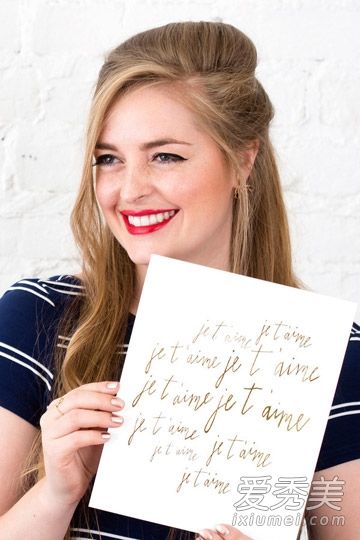 je t'aime je t'aime
je t'aime je t'aime
je t'aime je t'aime
je t'aime je t'aime
je t'aime
je t'aime
爱秀美
ixiumei.com